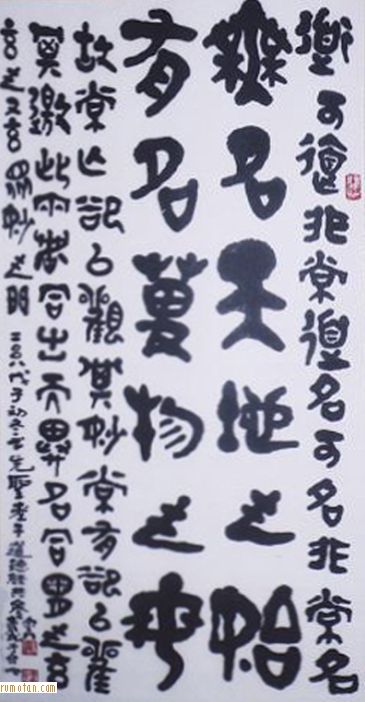 道可道非常道名可名非常名
無名天地之始
有名萬物之母
故常亡欲以觀其妙常有欲以觀
其徼此兩者同出而異名同謂之玄
玄之又玄眾妙之門 戊子初冬書先聖老子道德經
rumotan.com